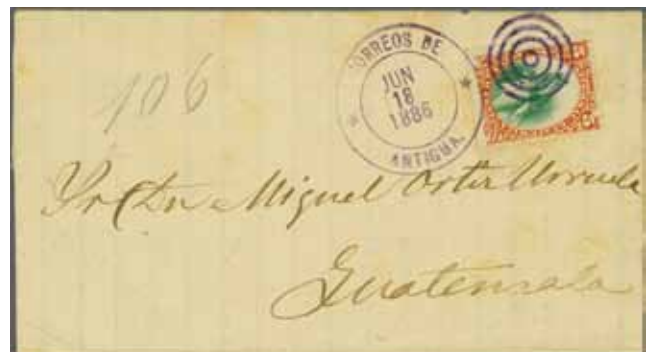 CORREOS DE
JUN
18
1886
ANTIGUA.
106
Sr Dn Miguel Ortiz Urruela
Guatemala